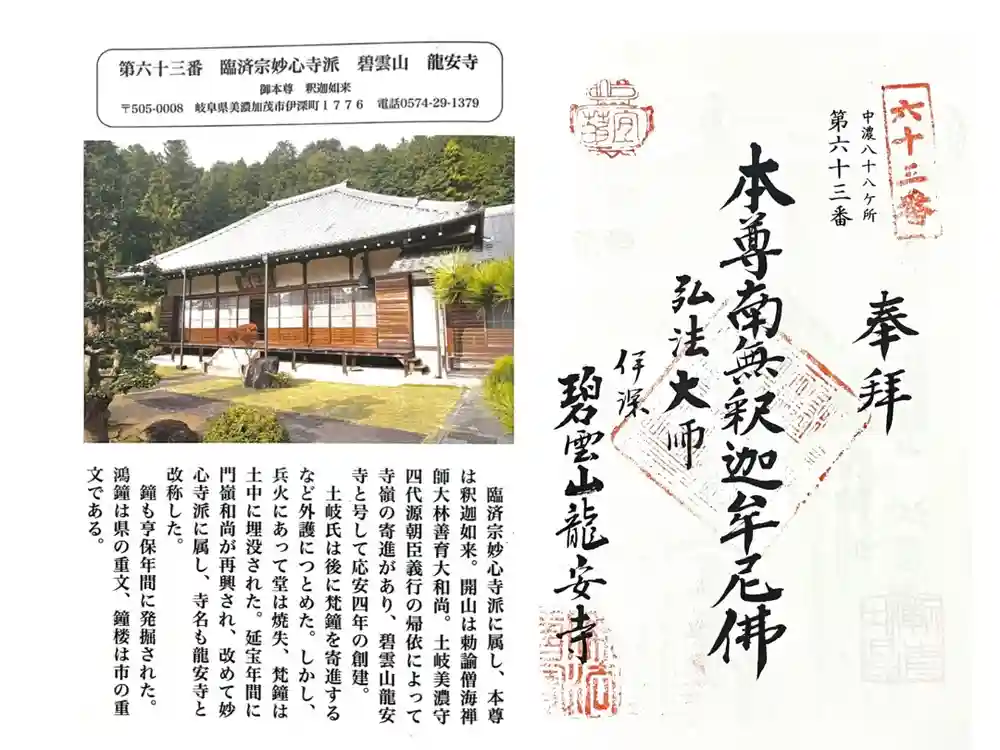 第六十三番　臨済宗妙心寺派　碧雲山　龍安寺
御本尊　釈迦如来
〒505-0008　岐阜県美濃加茂市伊深町１７７６　電話0574-29-1379
臨済宗妙心寺派に属し、本尊
は釈迦如来。開山は勅諭僧海禅
師大林善育大和尚。土岐美濃守
四代源朝臣義行の帰依によって
寺嶺の寄進があり、碧雲山龍安
寺と号して応安四年の創建。
土岐氏は後に梵鐘を寄進する
など外護につとめた。しかし、
兵火にあって堂は焼失、梵鐘は
土中に埋没された。延宝年間に
門嶺和尚が再興され、改めて妙
心寺派に属し、寺名も龍安寺と
改称した。
鐘も亨保年間に発掘された。
鴻鐘は県の重文、鐘楼は市の重
文である。
六十三番
中濃八十八ケ所
第六十三番
奉拜
本尊南無釈迦牟尼佛
弘法大师
伊深
碧雲山龍安寺